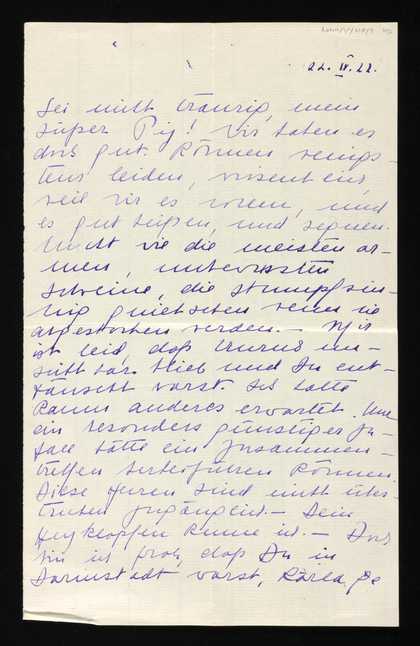 22. IV. 22.
Sei nicht traurig, mein
süßer Pig! Wir haben es
doch gut. Können wenigs-
tens leiden, wissentlich,
weil wir es wollen, und
es gut heißen, und segnen.
Nicht wie die meisten ar-
men, unbewussten
Schweine, die stumpfsin-
nig quietschen wenn sie
abgestochen werden. — Mir
ist leid, daß
blieb und Du ent-
täuscht warst. Ich hatte
kaum anderes erwartet. Nur
ein besonders günstiger Zu-
fall hätte ein Zusammen-
treffen herbeiführen können.
Diese Huren sind nicht
zugänglich. — Dein
Herzklopfen kenne ich. — Ich
bin ist froh, daß Du in
Darmstadt warst,